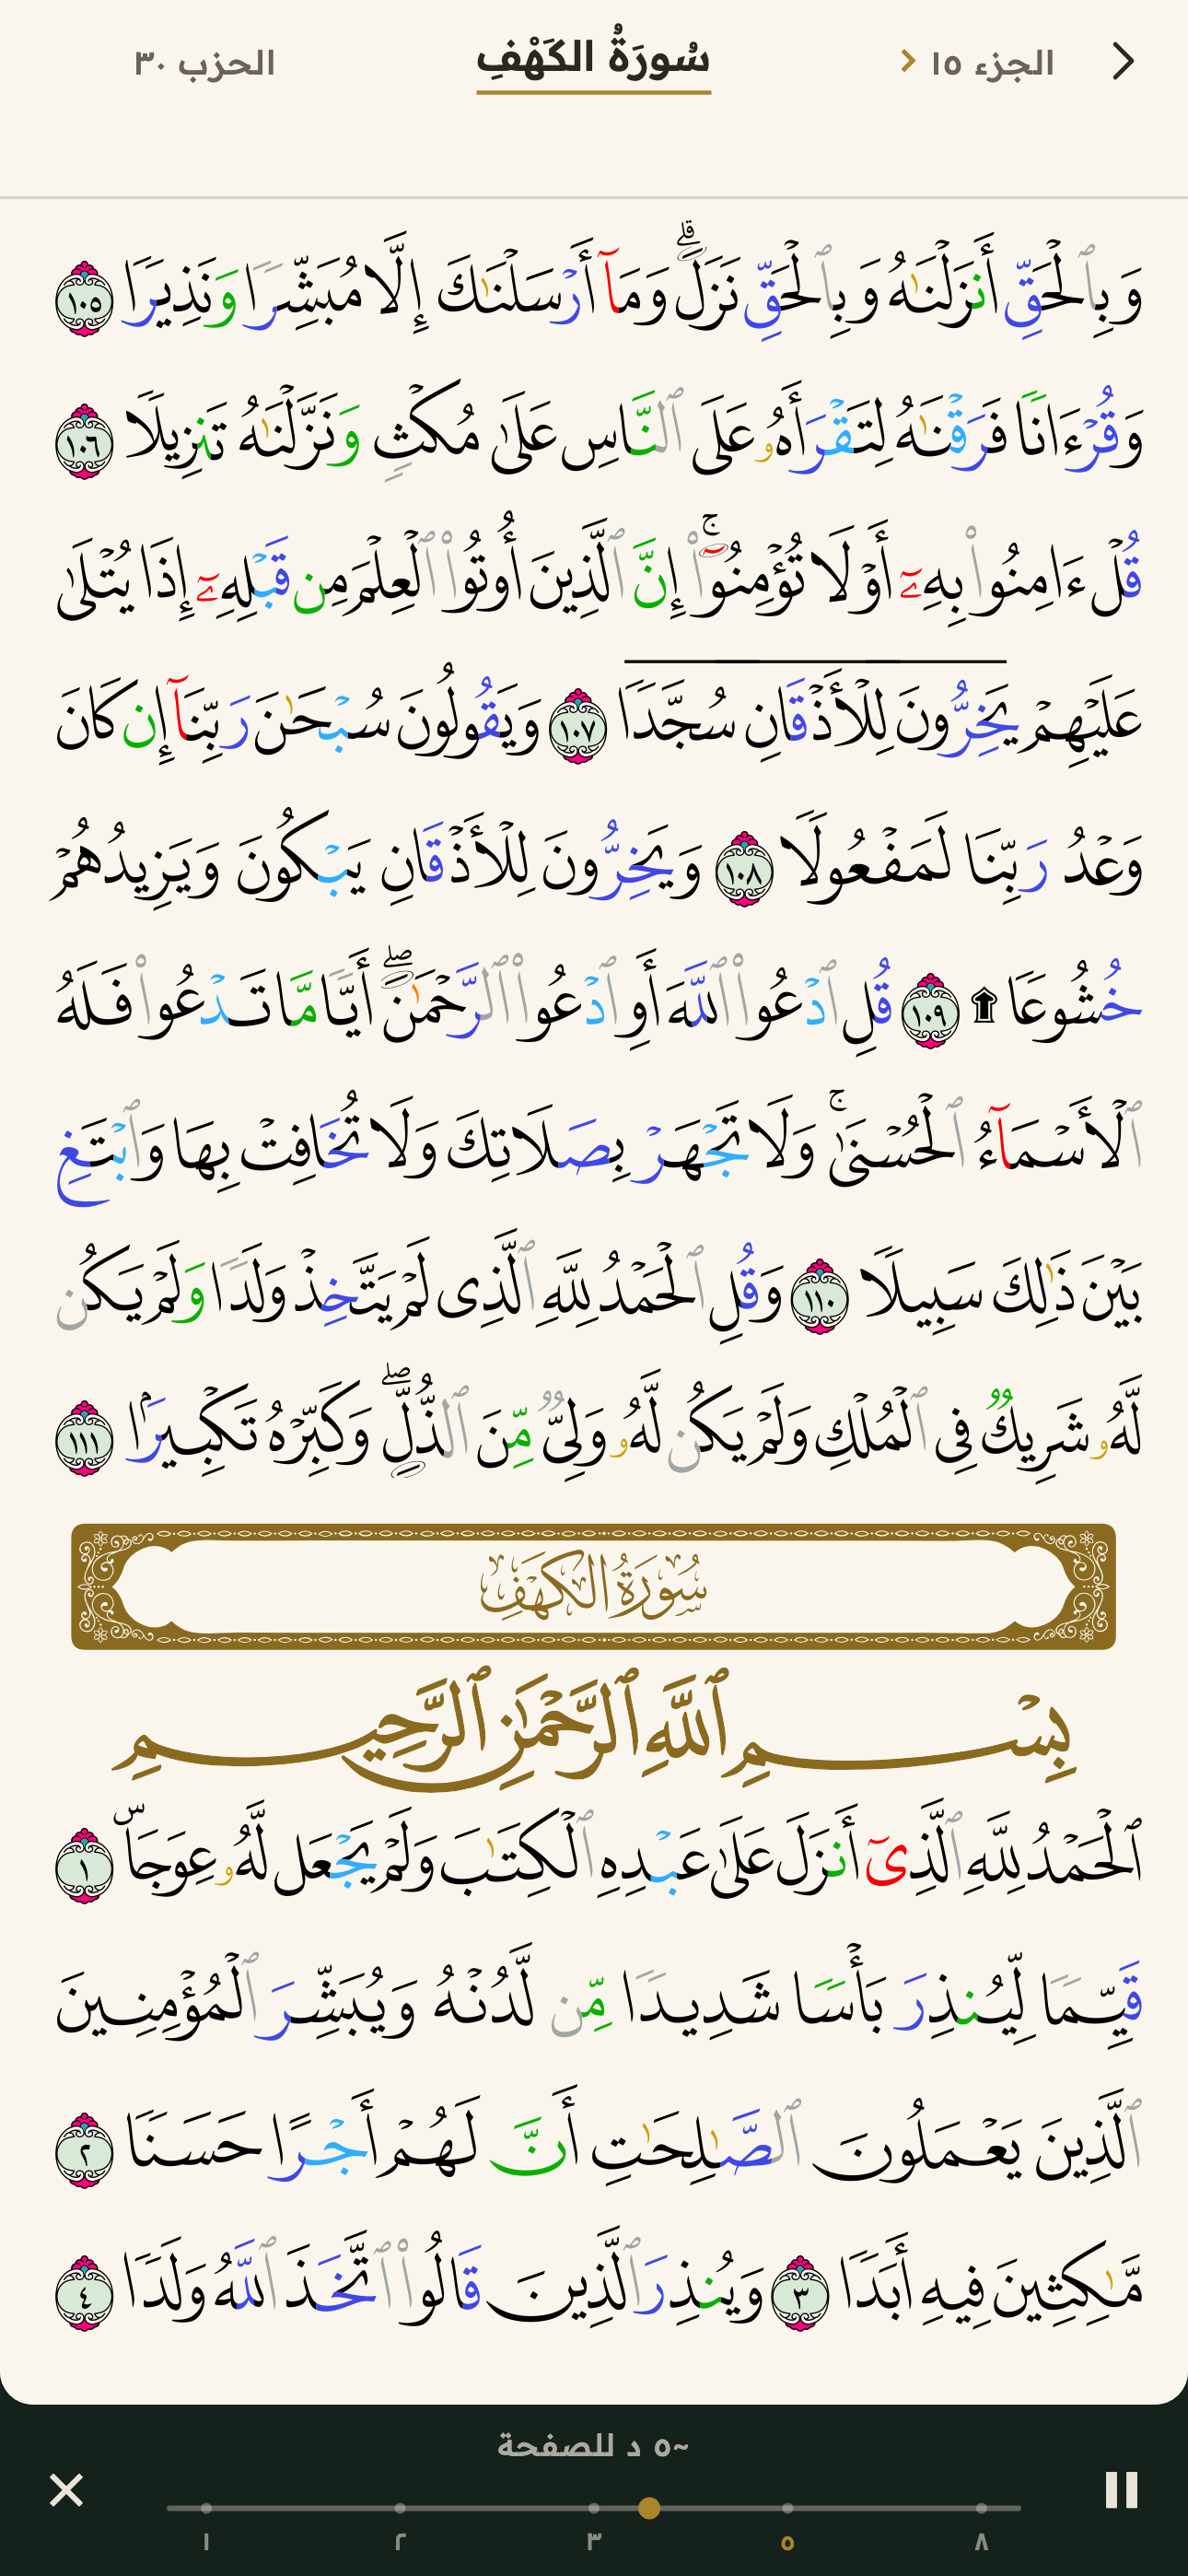 الجزء ١٥
سُورَةُ الكَهْفِ
الحزب ٣٠
وَبِٱلْحَقِّ أَنزَلْنَـٰهُ وَبِٱلْحَقِّ نَزَلَ ۗ وَمَآ أَرْسَلْنَـٰكَ إِلَّا مُبَشِّرًا وَنَذِيرًا ١٠٥
وَقُرْءَانًا فَرَقْنَـٰهُ لِتَقْرَأَهُۥ عَلَى ٱلنَّاسِ عَلَىٰ مُكْثٍ وَنَزَّلْنَـٰهُ تَنزِيلًا ١٠٦
قُلْ ءَامِنُوا۟ بِهِۦٓ أَوْ لَا تُؤْمِنُوٓا۟ ۚ إِنَّ ٱلَّذِينَ أُوتُوا۟ ٱلْعِلْمَ مِن قَبْلِهِۦٓ إِذَا يُتْلَىٰ
عَلَيْهِمْ يَخِرُّونَ لِلْأَذْقَانِ سُجَّدًا ١٠٧ وَيَقُولُونَ سُبْحَـٰنَ رَبِّنَآ إِن كَانَ
وَعْدُ رَبِّنَا لَمَفْعُولًا ١٠٨ وَيَخِرُّونَ لِلْأَذْقَانِ يَبْكُونَ وَيَزِيدُهُمْ
خُشُوعًا ۩ ١٠٩ قُلِ ٱدْعُوا۟ ٱللَّهَ أَوِ ٱدْعُوا۟ ٱلرَّحْمَـٰنَ ۖ أَيًّا مَّا تَدْعُوا۟ فَلَهُ
ٱلْأَسْمَآءُ ٱلْحُسْنَىٰ ۚ وَلَا تَجْهَرْ بِصَلَاتِكَ وَلَا تُخَافِتْ بِهَا وَٱبْتَغِ
بَيْنَ ذَٰلِكَ سَبِيلًا ١١٠ وَقُلِ ٱلْحَمْدُ لِلَّهِ ٱلَّذِى لَمْ يَتَّخِذْ وَلَدًا وَلَمْ يَكُن
لَّهُۥ شَرِيكٌ فِى ٱلْمُلْكِ وَلَمْ يَكُن لَّهُۥ وَلِىٌّ مِّنَ ٱلذُّلِّ ۖ وَكَبِّرْهُ تَكْبِيرًۢا ١١١
سُورَةُ الكَهْفِ
بِسْمِ ٱللَّهِ ٱلرَّحْمَـٰنِ ٱلرَّحِيمِ
ٱلْحَمْدُ لِلَّهِ ٱلَّذِىٓ أَنزَلَ عَلَىٰ عَبْدِهِ ٱلْكِتَـٰبَ وَلَمْ يَجْعَل لَّهُۥ عِوَجَاۜ ١
قَيِّمًا لِّيُنذِرَ بَأْسًا شَدِيدًا مِّن لَّدُنْهُ وَيُبَشِّرَ ٱلْمُؤْمِنِينَ
ٱلَّذِينَ يَعْمَلُونَ ٱلصَّـٰلِحَـٰتِ أَنَّ لَهُمْ أَجْرًا حَسَنًا ٢
مَّـٰكِثِينَ فِيهِ أَبَدًا ٣ وَيُنذِرَ ٱلَّذِينَ قَالُوا۟ ٱتَّخَذَ ٱللَّهُ وَلَدًا ٤
~٥ د للصفحة
١ ٢ ٣ ٥ ٨